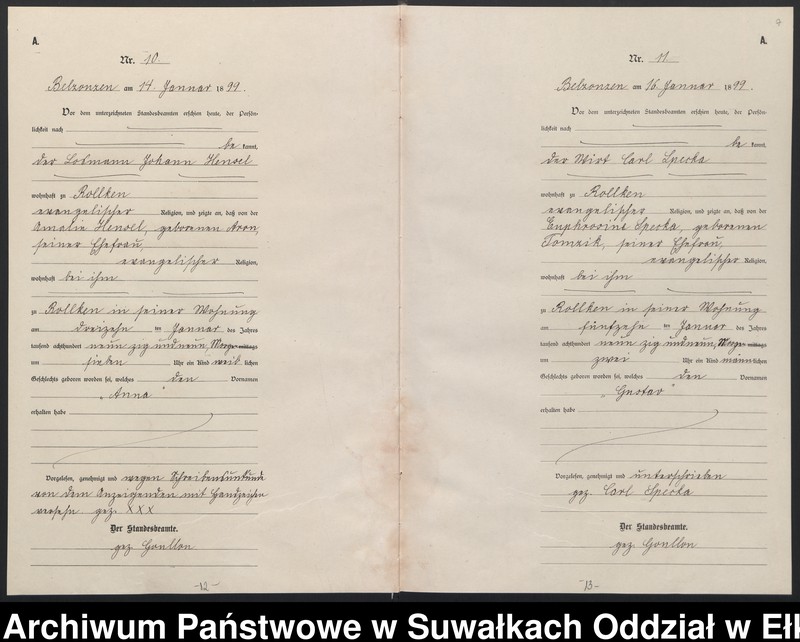 A.
Nr. 10.
Belzonzen am 14. Januar 1899.
Vor dem unterzeichneten Standesbeamten erschien heute, der Persön-
lichkeit nach
be kannt,
der Losmann Johann Hensel
wohnhaft zu Rollken
evangelischer Religion, und zeigte an, daß von der
Amalie Hensel, geborenen Aron,
seiner Ehefrau,
evangelischer Religion,
wohnhaft bei ihm
zu Rollken in seiner Wohnung
am dreizehn ten Januar des Jahres
tausend achthundert neunzig und neun, Morgens mittags
um sieben Uhr ein Kind weib lichen
Geschlechts geboren worden sei, welches den Vornamen
"Anna"
erhalten habe
Vorgelesen, genehmigt und wegen Schreibensunkunde
von dem Anzeigenden mit Handzeichen
versehn gez. XXX
Der Standesbeamte.
gez. Goullon
-12-
9
A.
Nr. 11
Belzonzen am 16. Januar 1899.
Vor dem unterzeichneten Standesbeamten erschien heute, der Persön-
lichkeit nach
be kannt,
der Wirt Carl Specka
wohnhaft zu Rollken
evangelischer Religion, und zeigte an, daß von der
Euphrosine Specka, geborenen
Tomzik, seiner Ehefrau,
evangelischer Religion,
wohnhaft bei ihm
zu Rollken in seiner Wohnung
am fünfzehn ten Januar des Jahres
tausend achthundert neunzig und neun, Morgens mittags
um zwei Uhr ein Kind männlichen
Geschlechts geboren worden sei, welches den Vornamen
"Gustav"
erhalten habe
Vorgelesen, genehmigt und unterschrieben
gez. Carl Specka
Der Standesbeamte.
gez. Goullon
-13-
Archiwum Państwowe w Suwałkach Oddział w Eł